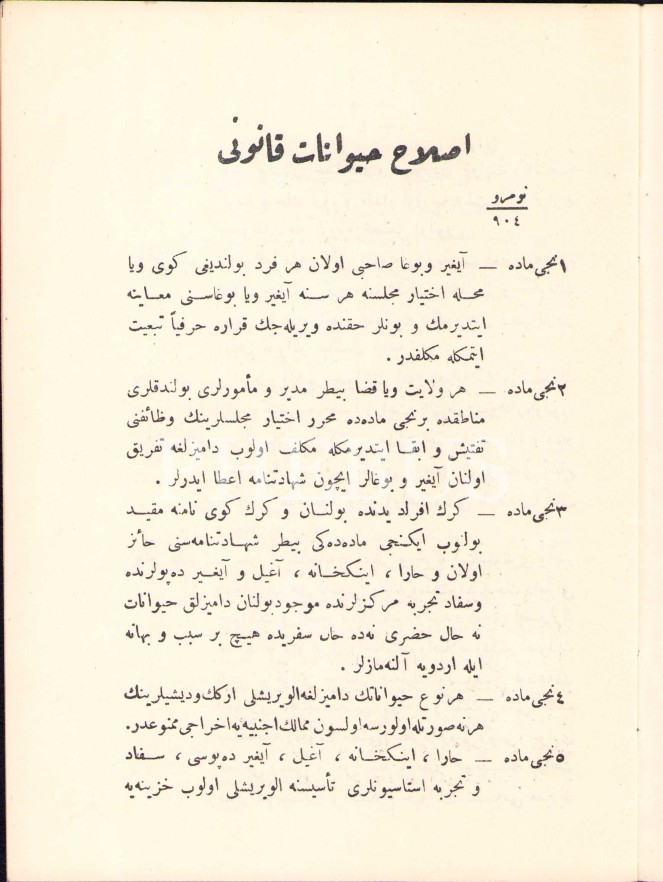 اصلاح حیوانات قانونی
نومرو
٩٠٤
١نجی ماده — آیغیر وبوغا صاحبی اولان هر فرد بولندیغی کوی ویا
محله اختیار مجلسنه هر سنه آیغیر ویا بوغاسنی معاینه
ایتدیرمك و بونلر حقنده ویریله‌جك قراره حرفیاً تبعیت
ایتمکله مکلفدر .
٢نجی ماده — هر ولایت ویا قضا بیطر مدیر و مأمورلری بولندقلری
مناطقده برنجی ماده‌ده محرر اختیار مجلسلرینك وظائفنی
تفتیش و ایفا ایتدیرمکله مکلف اولوب دامیزلغه تفریق
اولنان آیغیر و بوغالر ایچون شهادتنامه اعطا ایدرلر .
٣نجی ماده — کرك افراد یدنده بولنان و کرك کوی نامنه مقید
بولنوب ایکنجی ماده‌ده‌کی بیطر شهادتنامه‌سنی حائز
اولان و حارا ، اینکخانه ، آغیل و آیغیر ده‌پولرنده
وسفاد تجربه مرکزلرنده موجود بولنان دامیزلق حیوانات
نه حال حضری نه‌ده حال سفریده هیچ بر سبب و بهانه
ایله اردویه آلنه‌مازلر .
٤نجی ماده — هر نوع حیواناتك دامیزلغه الویریشلی ارکك ودیشیلرینك
هر نه صورتله اولورسه اولسون ممالك اجنبیه‌یه اخراجی ممنوعدر.
٥نجی ماده — حارا ، اینکخانه ، آغیل ، آیغیر ده‌پوسی ، سفاد
و تجربه استاسیونلری تأسیسنه الویریشلی اولوب خزینه‌یه